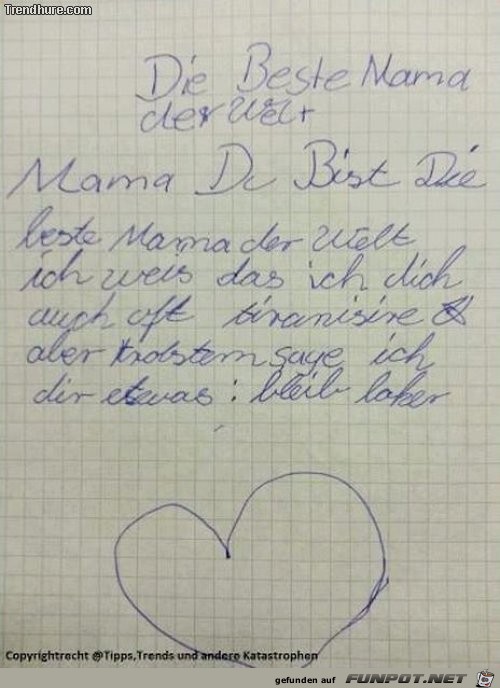 Trendhure.com
Die Beste Mama
der Welt
Mama Du Bist Die
beste Mama der Welt
ich weis das ich dich
auch oft tiranisire
aber trobstem sage ich
dir etwas: bleib loker
Copyrightrecht @Tipps,Trends und andere Katastrophen
gefunden auf FUNPOT.NET